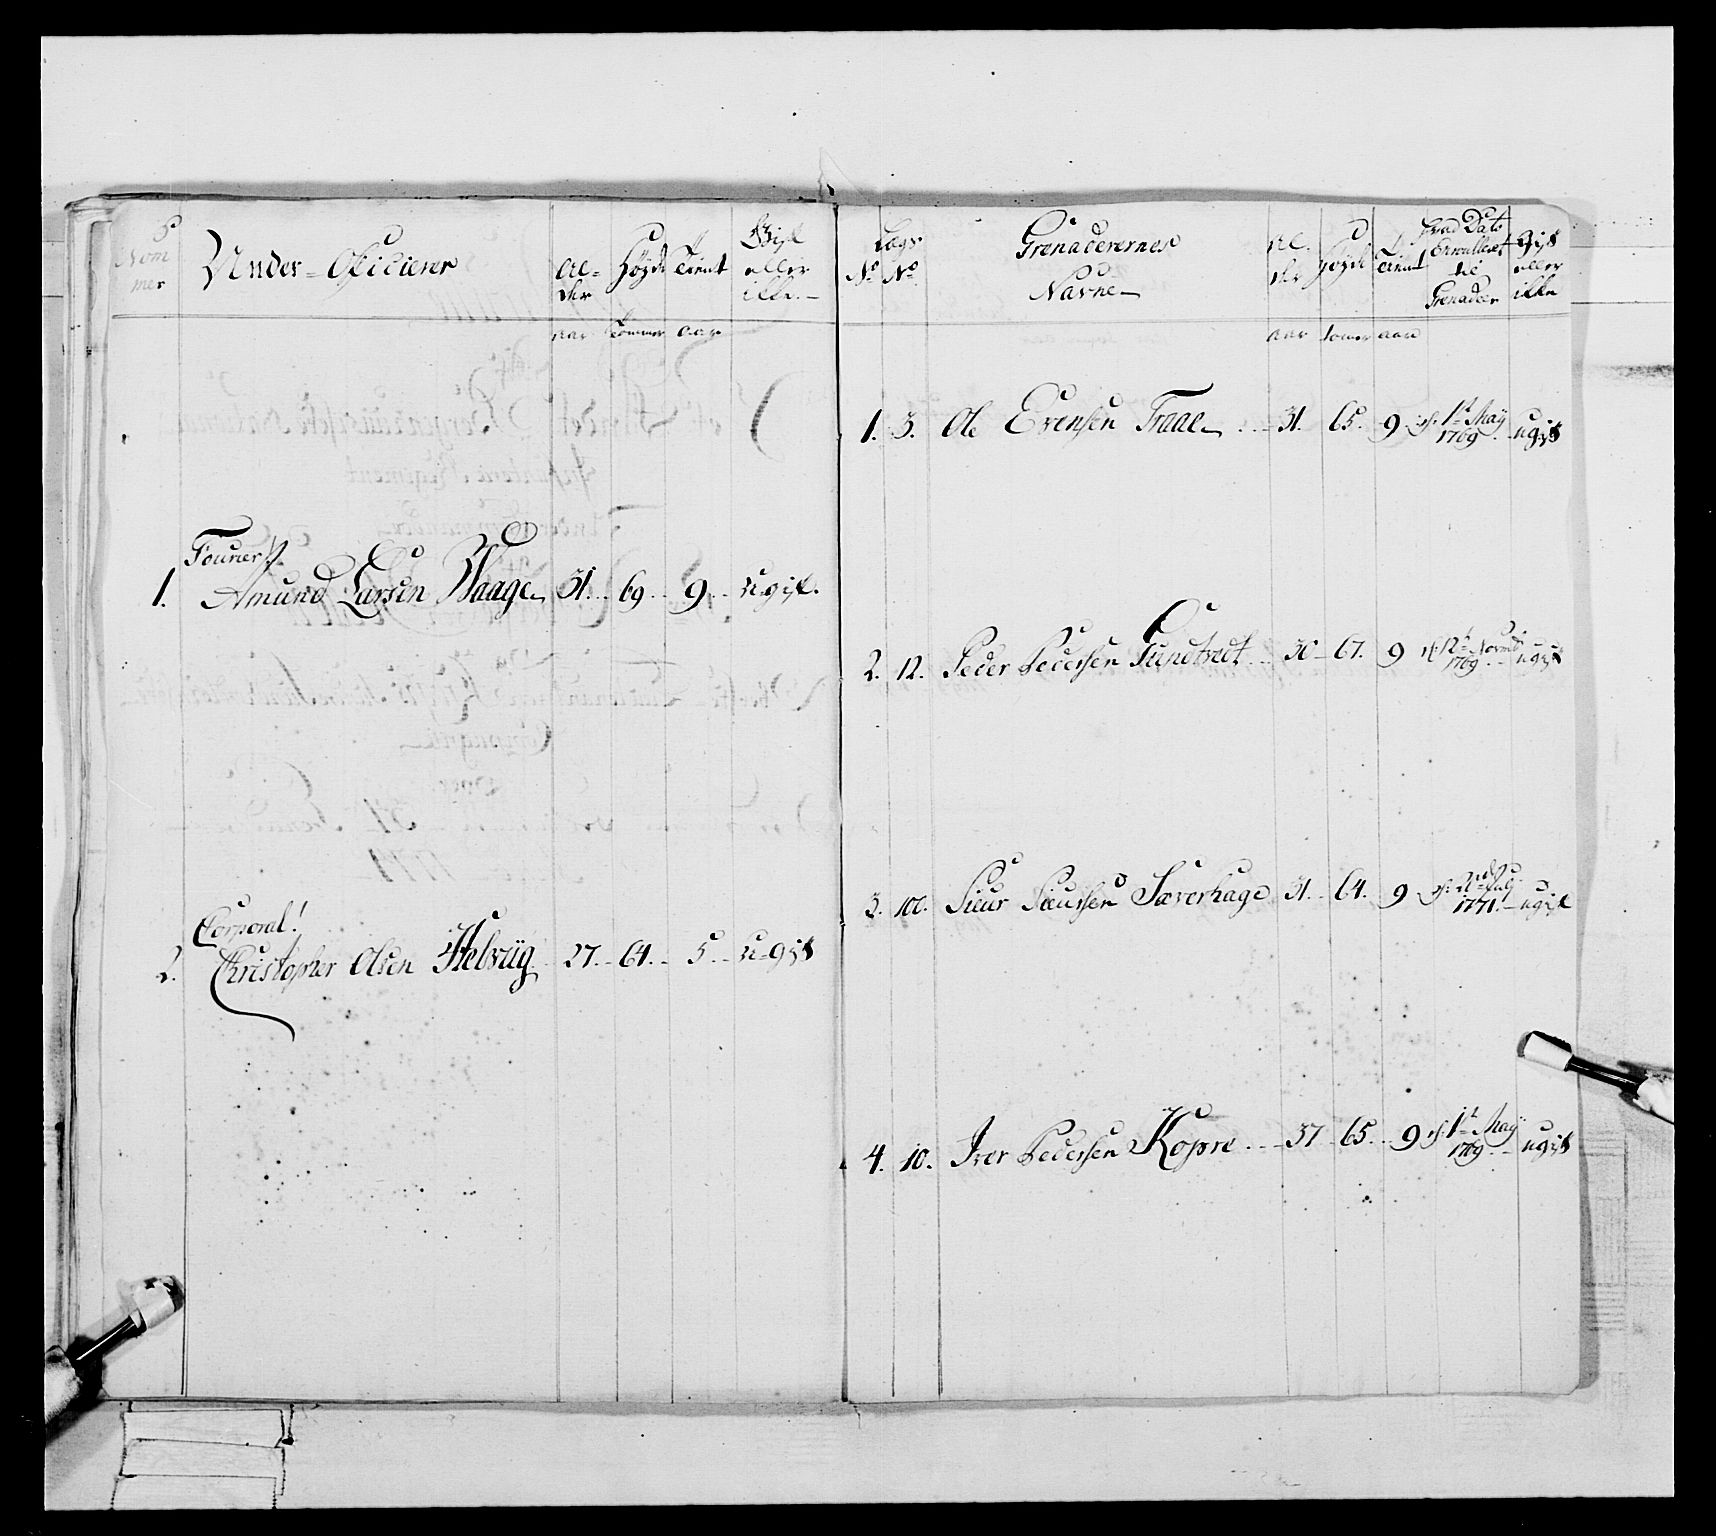 Nom
mer
Under-Officierer
Al-
der
Høyde
Tient
Gift
eller
ikke
aar
Tommer
aar
1.
Fourier
Amund Larsen Waage
31.
69
9
ugift.
2.
Corporal!
Christopher Olsen Helviig
27
64
5
u-gift
No
Lægs
No
Grenaderernes
Navne
Al-
der
Høyde
Tient
hvad Dato
Enroulleret
til
Grenadeer
Gift
eller
ikke
aar
tomer
aar
1. 3. Ole Evensen Traae 31. 65. 9 1st May
1769 ugift
2. 12. Peder Pedersen 30 67. 9 12t Novemb
1769 ugift
3. 100. Siur Siurssen Sæverhage 31 64. 9 July
1771. ugift
4. 10. Iver Pedersen Kopre 37 65. 9 1st May
1769 ugift